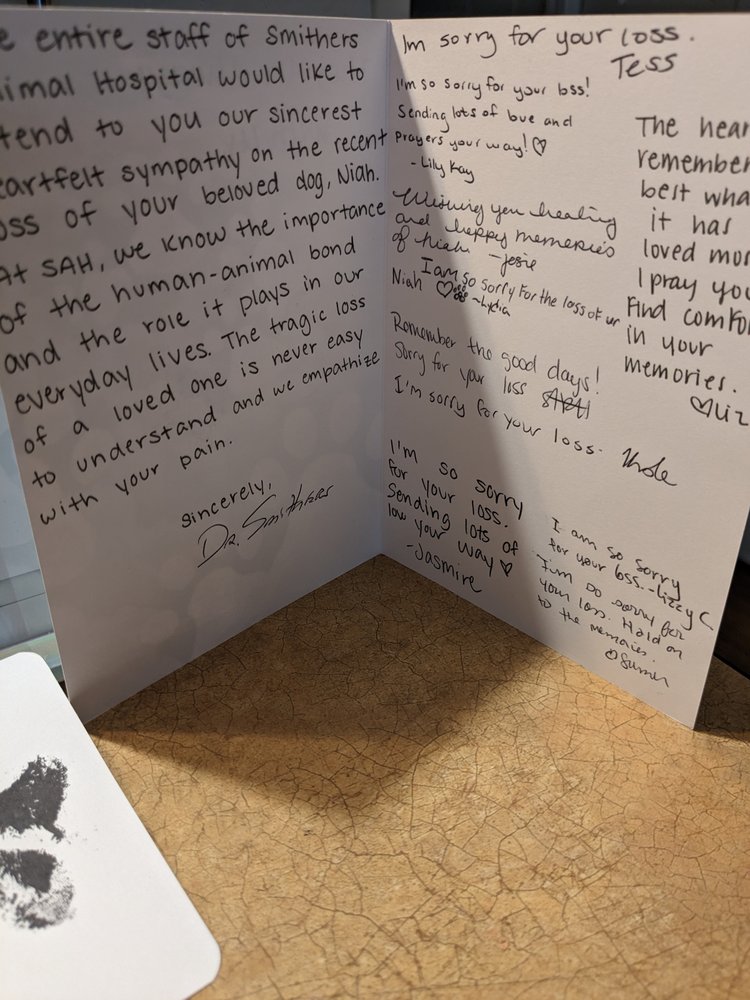 e entire staff of Smithers
imal Hospital would like to
tend to you our sincerest
eartfelt sympathy on the recent
oss of your beloved dog, Niah.
At SAH, we know the importance
of the human-animal bond
and the role it plays in our
everyday lives. The tragic loss
of a loved one is never easy
to understand and we empathize
with your pain.
Sincerely,
Dr. Smithers
Im sorry for your loss.
Tess
I'm so sorry for your loss!
Sending lots of love and
prayers your way! ♡
- Lily Kay
Wishing you healing
and happy memories
of Niah -Josie
I am so sorry for the loss of ur
Niah ♡ -Lydia
Remember the good days!
Sorry for your loss
I'm sorry for your loss.
I'm so sorry
for your loss.
Sending lots of
lov your way ♡
-Jasmire
The hear
remember
best wha
it has
loved mo
I pray you
find comfo
in your
memories.
♡Liz
I am so sorry
for your loss. -Lizzy C
I'm so sorry for
your loss. Hold on
to the memories.